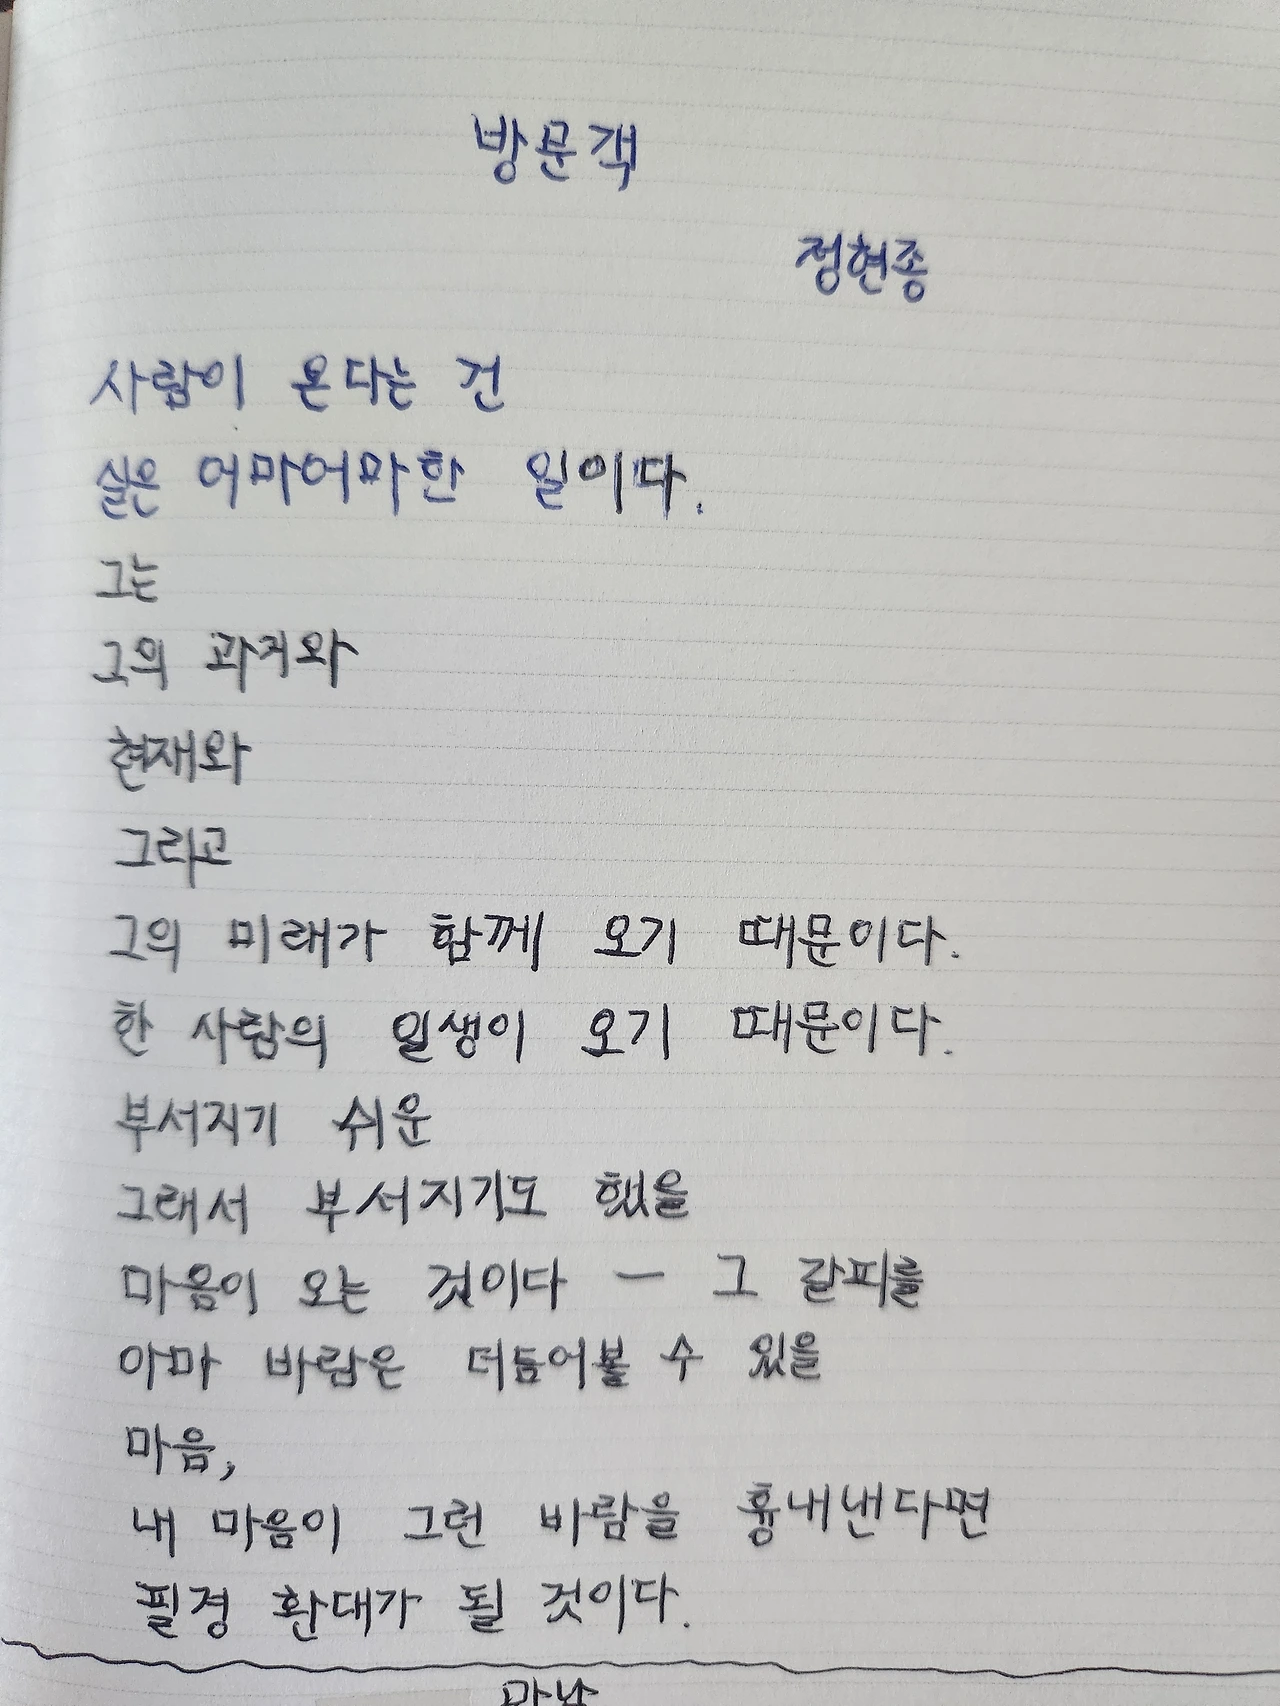 방문객
정현종
사람이 온다는 건
실은 어마어마한 일이다.
그는
그의 과거와
현재와
그리고
그의 미래가 함께 오기 때문이다.
한 사람의 일생이 오기 때문이다.
부서지기 쉬운
그래서 부서지기도 했을
마음이 오는 것이다 — 그 갈피를
아마 바람은 더듬어볼 수 있을
마음,
내 마음이 그런 바람을 흉내낸다면
필경 환대가 될 것이다.